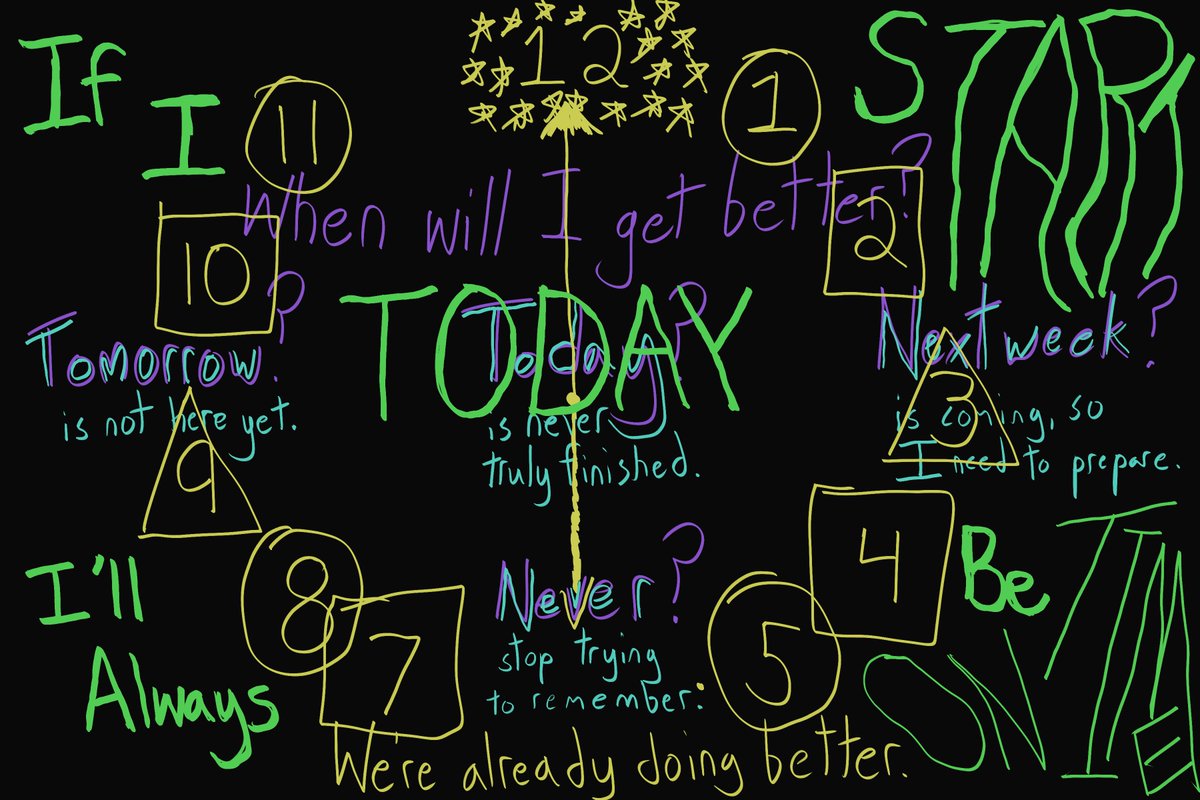 If
I
START
TODAY
I'll
Always
Be
ON
TIME
12
11
1
10
2
9
3
8
4
7
5
When will I get better?
Tomorrow?
is not here yet.
Today?
is never
truly finished.
Next week?
is coming, so
I need to prepare.
Never?
stop trying
to remember:
We're already doing better.